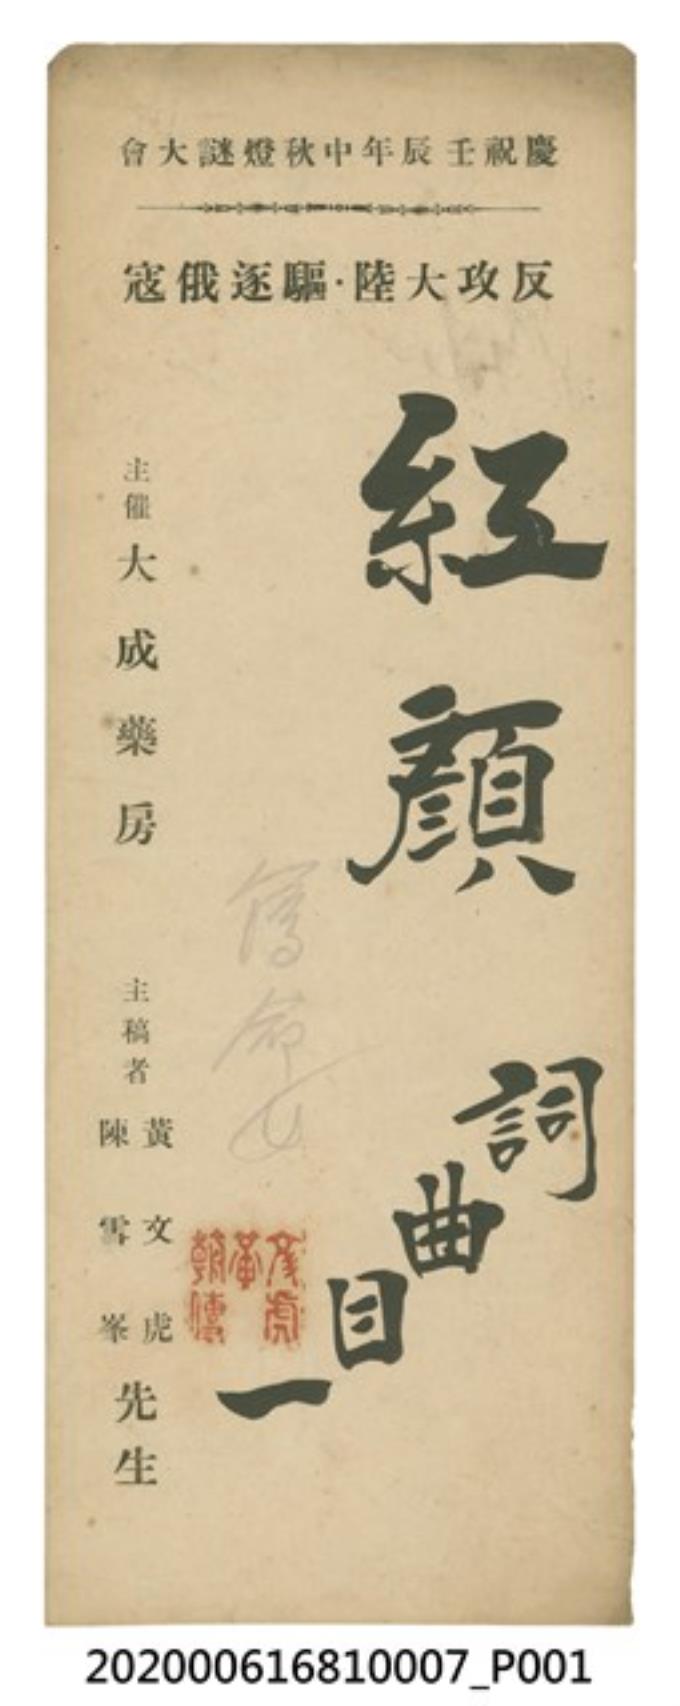 慶祝壬辰年中秋燈謎大會
反攻大陸·驅逐俄寇
紅顏
詞曲目一
主催 大成藥房
主稿者 黃文虎 陳雪峯 先生
202000616810007_P001